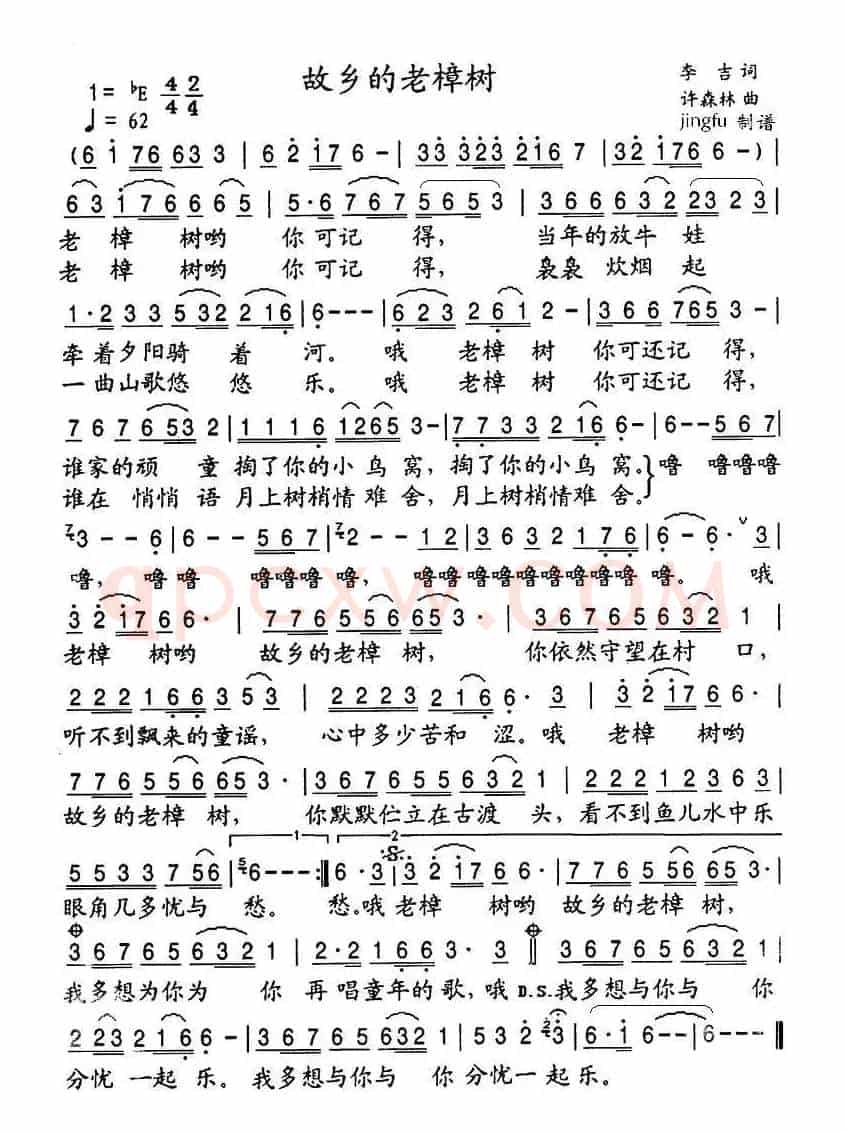 故乡的老樟树
1=♭E 4/4 2/4
♩=62
李吉词
许森林曲
jingfu 制谱
(6 i 76 63 3 | 6 2 i76 6 - | 33 323 2i67 | 32 i76 6 - ) |
63 i76 665 | 5·6 767 5653 | 366632 2323 |
老樟树哟 你可记得， 当年的放牛娃
老樟树哟 你可记得， 袅袅炊烟起
1·233 532 216 | 6--- | 623 261 2- | 366 765 3- |
牵着夕阳骑着河。 哦老樟树你可还记得，
一曲山歌悠悠乐。 哦老樟树你可还记得，
7676 653 2 | 1116 1265 3- | 7733 216 6- | 6--567 |
谁家的顽童掏了你的小鸟窝，掏了你的小鸟窝。噜 噜噜噜
谁在悄悄语月上树梢情难舍，月上树梢情难舍。
3--6 | 6--567 | 2--12 | 3632 176 | 6-6· ∨ 3 |
噜，噜噜 噜噜噜噜，噜噜噜噜噜噜噜噜噜。 哦
32 i76 6· | 776556 653· | 36765632 21 |
老樟树哟 故乡的老樟树， 你依然守望在村口，
222166353 | 2223 216 6·3 | 32 i76 6· |
听不到飘来的童谣， 心中多少苦和涩。哦 老樟树哟
776556 653· | 36765632 21 | 2222 12363 |
故乡的老樟树， 你默默伫立在古渡头，看不到鱼儿水中乐
1 2
5533756 | 6---:‖ 6·3 | 32 i766· | 776556 653· |
眼角几多忧与愁。 愁。哦老樟树哟 故乡的老樟树，
36765632 21 | 2·2166 63·3 ‖ 36765632 21 |
我多想为你为你再唱童年的歌，哦D.S.我多想与你与你
223 2166· | 36765632 1 | 532 3 | 6·i6-- | 6-- ‖
分忧一起乐。我多想与你与你分忧一起乐。
qpcxw.com